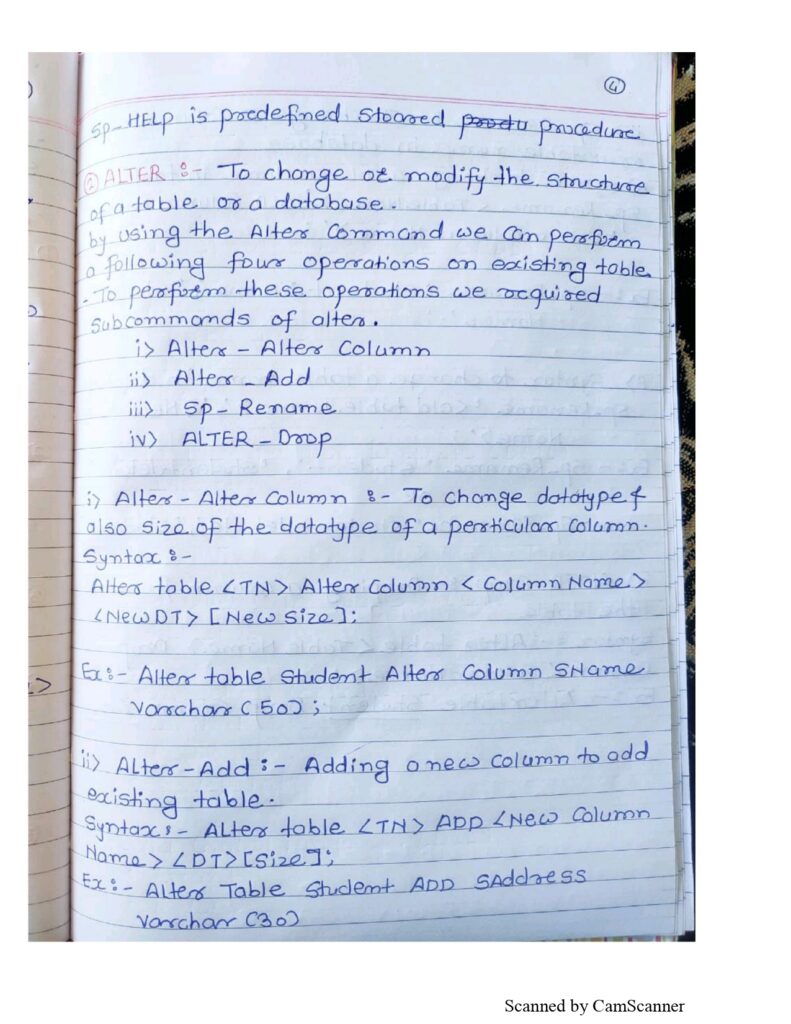 4
Sp-HELP is predefined stoared procedure
② ALTER :- To change or modify the structure
of a table or a database.
by using the Alter command we can perform
a following four operations on existing table
. To perform these operations we required
Subcommands of alter.
i> Alter - Alter Column
ii> Alter - Add
iii> Sp - Rename
iv> ALTER - Drop
i> Alter - Alter Column :- To change datatype &
also size of the datatype of a perticular column.
Syntax :-
Alter table <TN> Alter Column < Column Name >
<New DT> [New size];
Ex:- Alter table Student Alter Column SName
varchar(50);
ii> Alter-Add :- Adding a new column to add
existing table.
Syntax:- Alter table <TN> ADD <New Column
Name> <DT>[size];
Ex:- Alter Table Student ADD SAddress
varchar (30)
Scanned by CamScanner